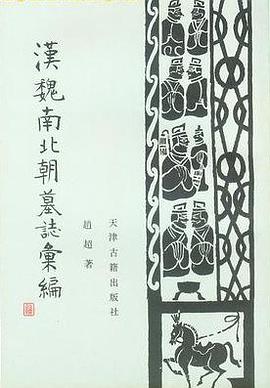 漢魏南北朝墓誌彙編
趙超著
天津古籍出版社